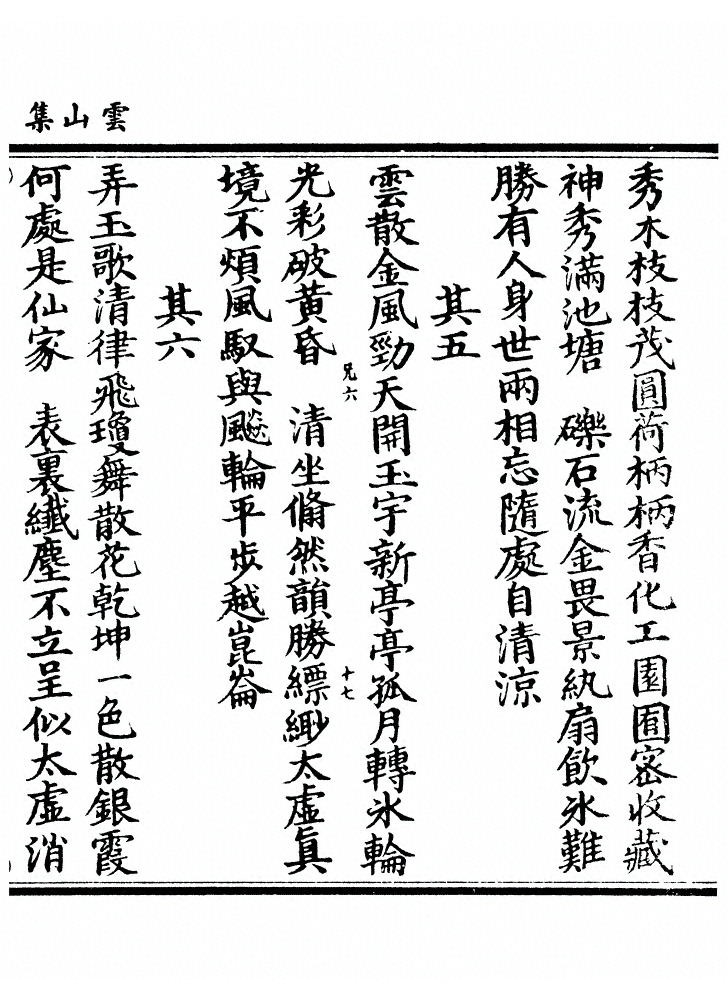 雲山集
秀木枝枝茂圓荷柄柄香化工園囿密收藏
神秀滿池塘　礫石流金畏景紈扇飲冰難
勝有人身世兩相忘隨處自清涼
其五
雲散金風勁天開玉宇新亭亭孤月轉氷輪
光彩破黃昏　清坐翛然韻勝縹緲太虛眞
境不煩風馭與飈輪平步越崑崙
兄六
十七
其六
弄玉歌清律飛瓊舞散花乾坤一色散銀霞
何處是仙家　表裏纖塵不立呈似太虛消